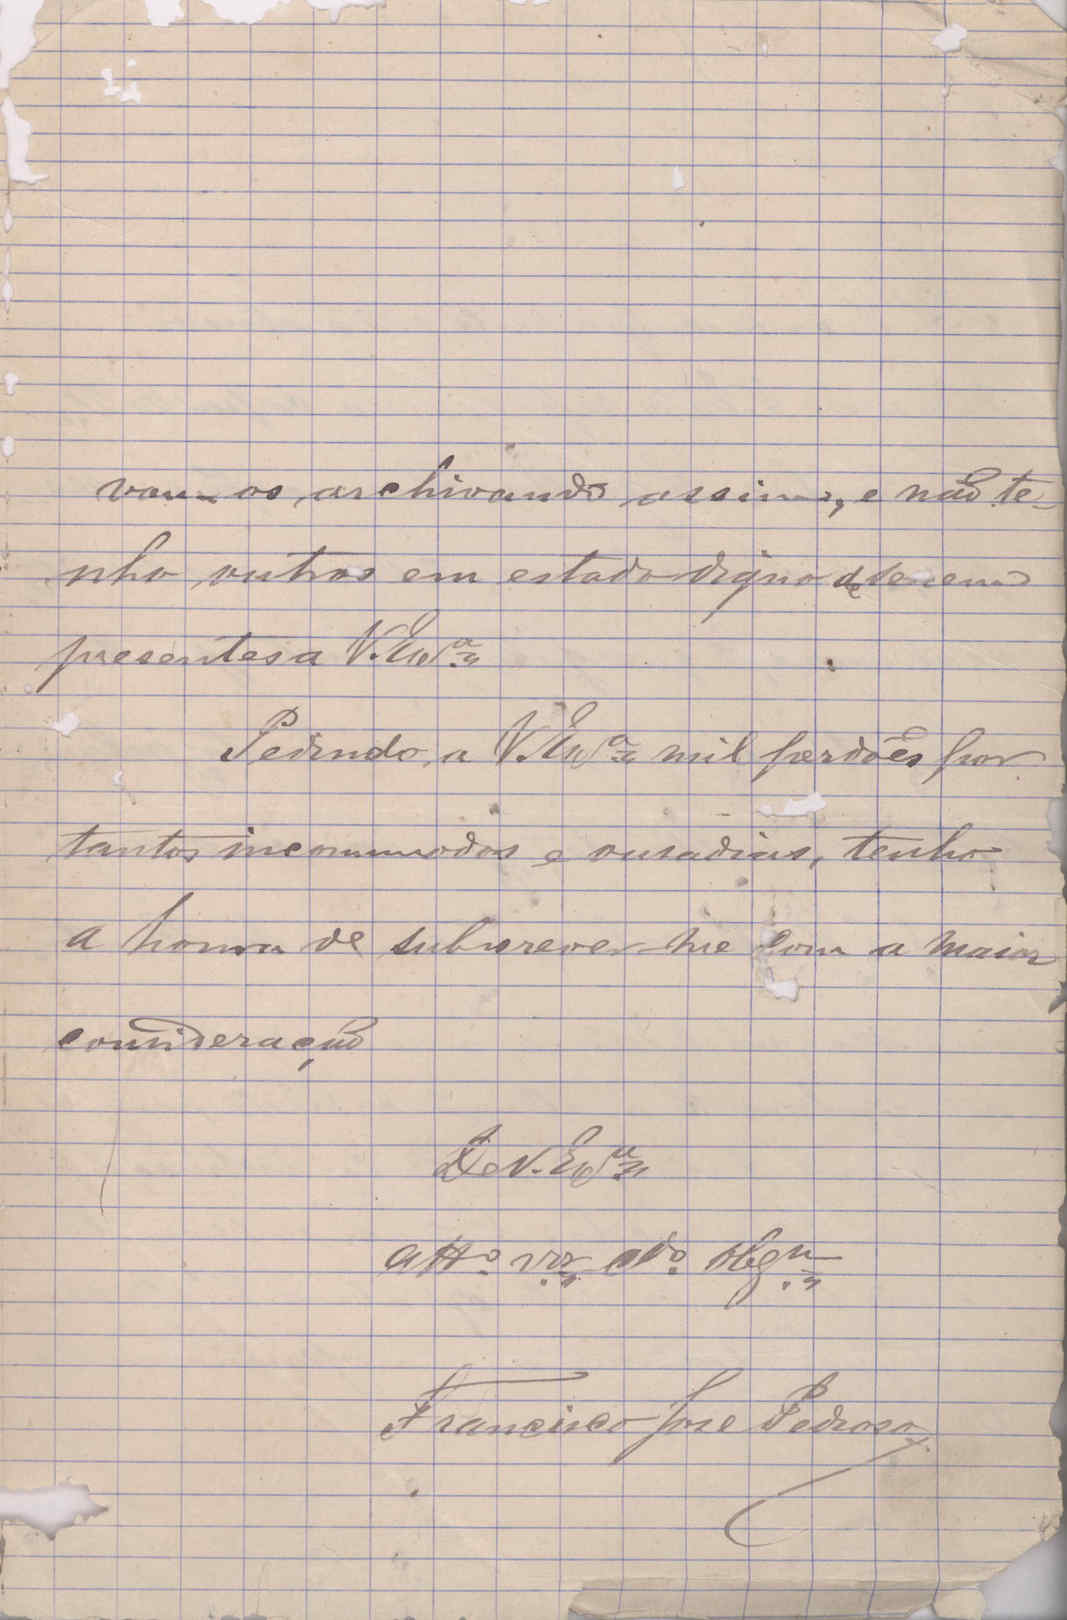 vam os archivando assim, e não te-
nho outros em estado digno de serem
presentes a V. Exª.
Pedindo, a V. Exª. mil perdões por
tantos incommodos e ousadias, tenho
a honra de subscrever-me com a maior
consideração
De V. Exª.
attº. vor. cdº. obgº.
Francisco José Pedroso